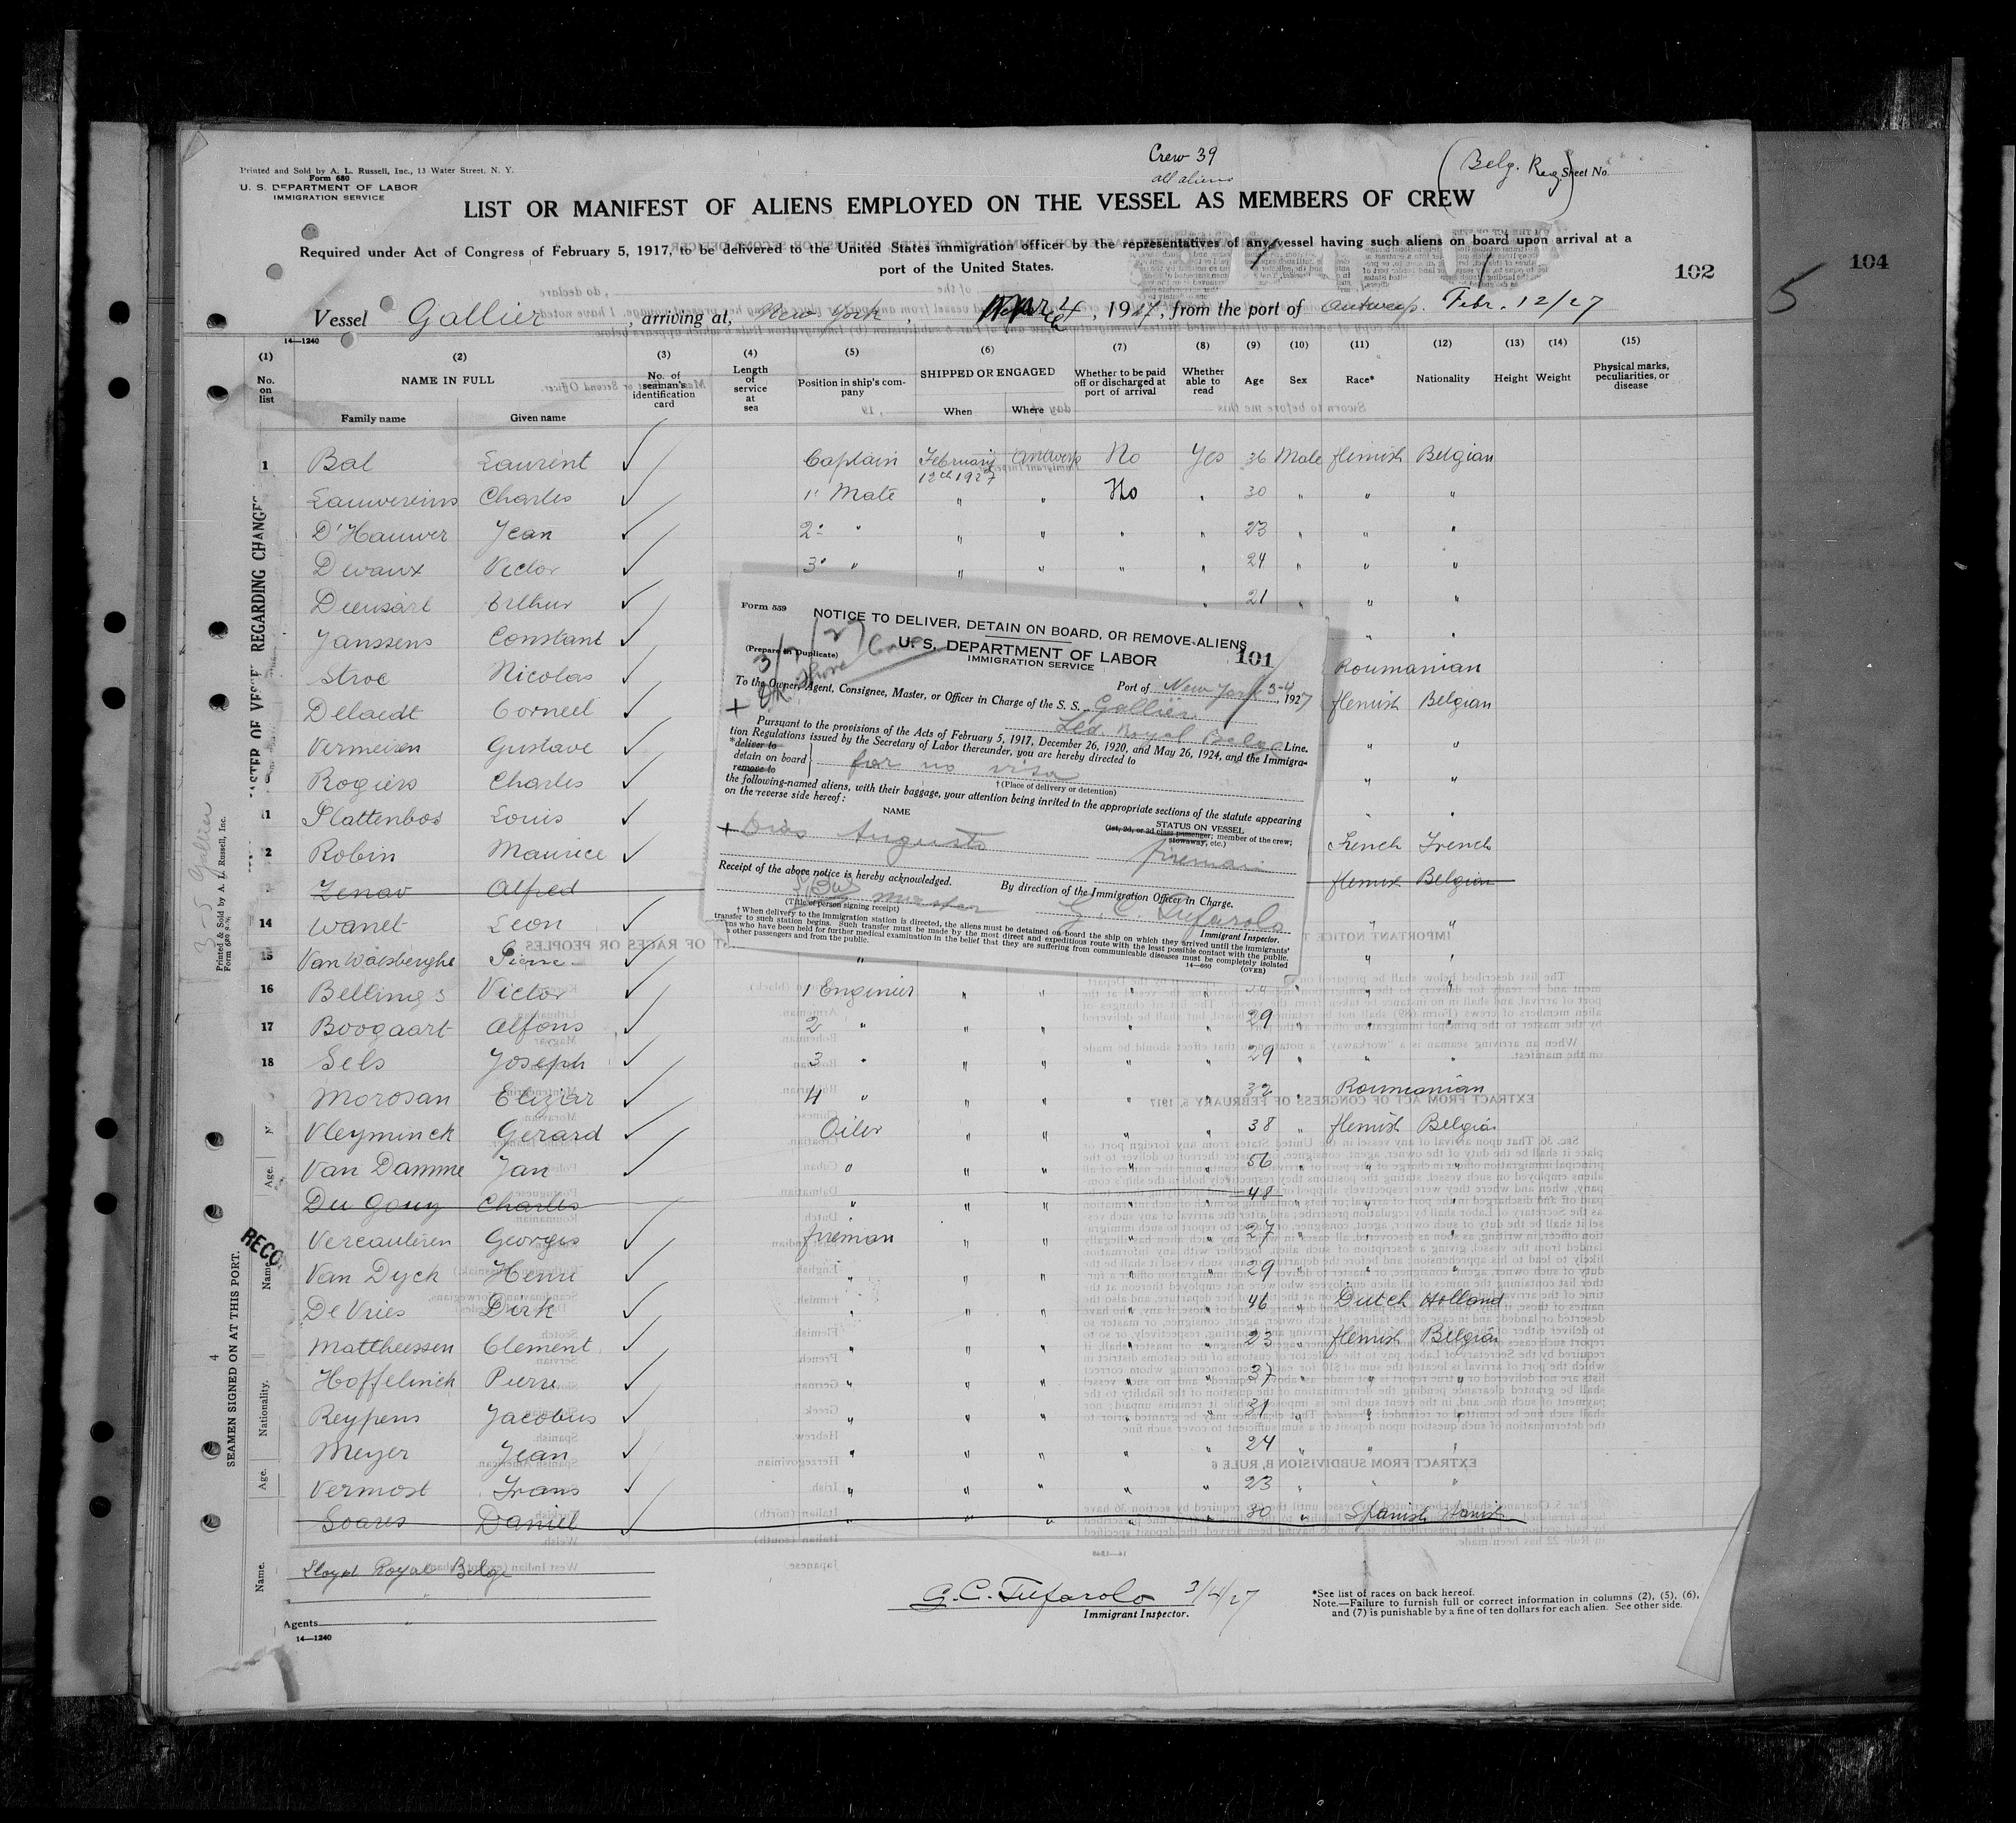 Crew 39
all aliens
(Belg. Reg.) Sheet No.
Printed and Sold by A. L. Russell, Inc., 13 Water Street, N. Y.
Form 680
U. S. DEPARTMENT OF LABOR
IMMIGRATION SERVICE
LIST OR MANIFEST OF ALIENS EMPLOYED ON THE VESSEL AS MEMBERS OF CREW
Required under Act of Congress of February 5, 1917, to be delivered to the United States immigration officer by the representatives of any vessel having such aliens on board upon arrival at a
port of the United States.
102
104
5
Vessel Gallier, arriving at, New York, Mar 4, 1927, from the port of Antwerp. Febr. 12/27
14—1240
(1) (2) (3) (4) (5) (6) (7) (8) (9) (10) (11) (12) (13) (14) (15)
No. on list
NAME IN FULL
Family name Given name
No. of seaman's identification card
Length of service at sea
Position in ship's company
SHIPPED OR ENGAGED
When Where
Whether to be paid off or discharged at port of arrival
Whether able to read
Age Sex Race* Nationality Height Weight
Physical marks, peculiarities, or disease
1 Bal Laurent ✓ Captain February 12th 1927 Antwerp No Yes 36 Male flemish Belgian
Lauwereins Charles ✓ 1" Mate " " No " 30 " " "
D'Hauwer Jean ✓ 2" " " " " " 23 " " "
Devaux Victor ✓ 3" " " " " " 24 " " "
Arthur ✓ " 21 " " "
Janssens Constant ✓ " "
Stroe Nicolas ✓ Roumanian
Delaedt Corneel ✓ flemish Belgian
Vermeiren Gustave ✓ " "
Rogiers Charles ✓ " "
11 Plattenbos Louis ✓ " "
2 Robin Maurice ✓ French French
Zenav Alfred flemish Belgian
14 Wanet Leon ✓ " "
15 Van Waesberghe Pierre ✓ " " "
16 Bellings Victor ✓ 1 Engineer " " " " " " "
17 Boogaart Alfons ✓ 2 " " " " " 29 " " "
18 Sels Joseph ✓ 3 " " " " " 29 " " "
Morosan Eliziar ✓ 4 " " " " " 32 " Roumanian
Vleyminck Gerard ✓ Oiler " " " " 38 " flemish Belgian
Van Damme Jan ✓ " " " " " 56 " " "
Charles " " " " " 48 " " "
Vercauteren Georges ✓ fireman " " " " 27 " " "
Van Dyck Henri ✓ " " " " " 29 " " "
De Vries Dirk ✓ " " " " " 46 " Dutch Holland
Mattheessen Clement ✓ " " " " " 23 " flemish Belgian
Hoffelinck Pierre ✓ " " " " " 37 " " "
Reypens Jacobus ✓ " " " " " 31 " " "
Meyer Jean ✓ " " " " " 24 " " "
Vermost Frans ✓ " " " " " 23 " " "
Soares Daniel ✓ " " " " " 30 " Spanish Spanish
Form 559
NOTICE TO DELIVER, DETAIN ON BOARD, OR REMOVE ALIENS
U. S. DEPARTMENT OF LABOR
IMMIGRATION SERVICE
(Prepare in Duplicate)
101
Port of New York 3-4, 1927
To the Owner, Agent, Consignee, Master, or Officer in Charge of the S. S. Gallier
Lld. Royal Belge Line.
Pursuant to the provisions of the Acts of February 5, 1917, December 26, 1920, and May 26, 1924, and the Immigra-
tion Regulations issued by the Secretary of Labor thereunder, you are hereby directed to
*deliver to
detain on board } for no visa
remove to
†(Place of delivery or detention)
the following-named aliens, with their baggage, your attention being invited to the appropriate sections of the statute appearing
on the reverse side hereof:
NAME
STATUS ON VESSEL
(1st, 2d, or 3d class passenger; member of the crew;
stowaway, etc.)
+ Dias Augusto fireman
Receipt of the above notice is hereby acknowledged.
By direction of the Immigration Officer in Charge.
L. Bal master
(Title of person signing receipt)
G. C. Tufarolo
Immigrant Inspector.
†When delivery to the immigration station is directed, the aliens must be detained on board the ship on which they arrived until the immigrants'
transfer to such station begins. Such transfer must be made by the most direct and expeditious route with the least possible contact with the public.
ns who have been held for further medical examination in the belief that they are suffering from communicable diseases must be completely isolated
other passengers and from the public.
14—660 (OVER)
Lloyd Royal Belge
Agents
14—1240
G. C. Tufarolo 3/4/27
Immigrant Inspector.
*See list of races on back hereof.
Note.—Failure to furnish full or correct information in columns (2), (5), (6),
and (7) is punishable by a fine of ten dollars for each alien. See other side.
ASTER OF VESSEL REGARDING CHANGES
3-5 Gallier
Printed & Sold by A. L. Russell, Inc.
Form 680
SEAMEN SIGNED ON AT THIS PORT.
4
Age.
Name.
Nationality.
Age.
Name.
RECO